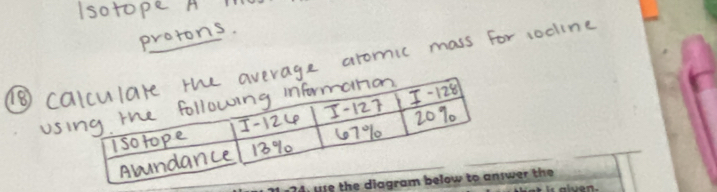 Isotope A
protons.
(18) calculate the average atomic mass for iodine
using the following information
Isotope I-126 I-127 I-128
Abundance 13% 67% 20%
use the diagram below to answer the